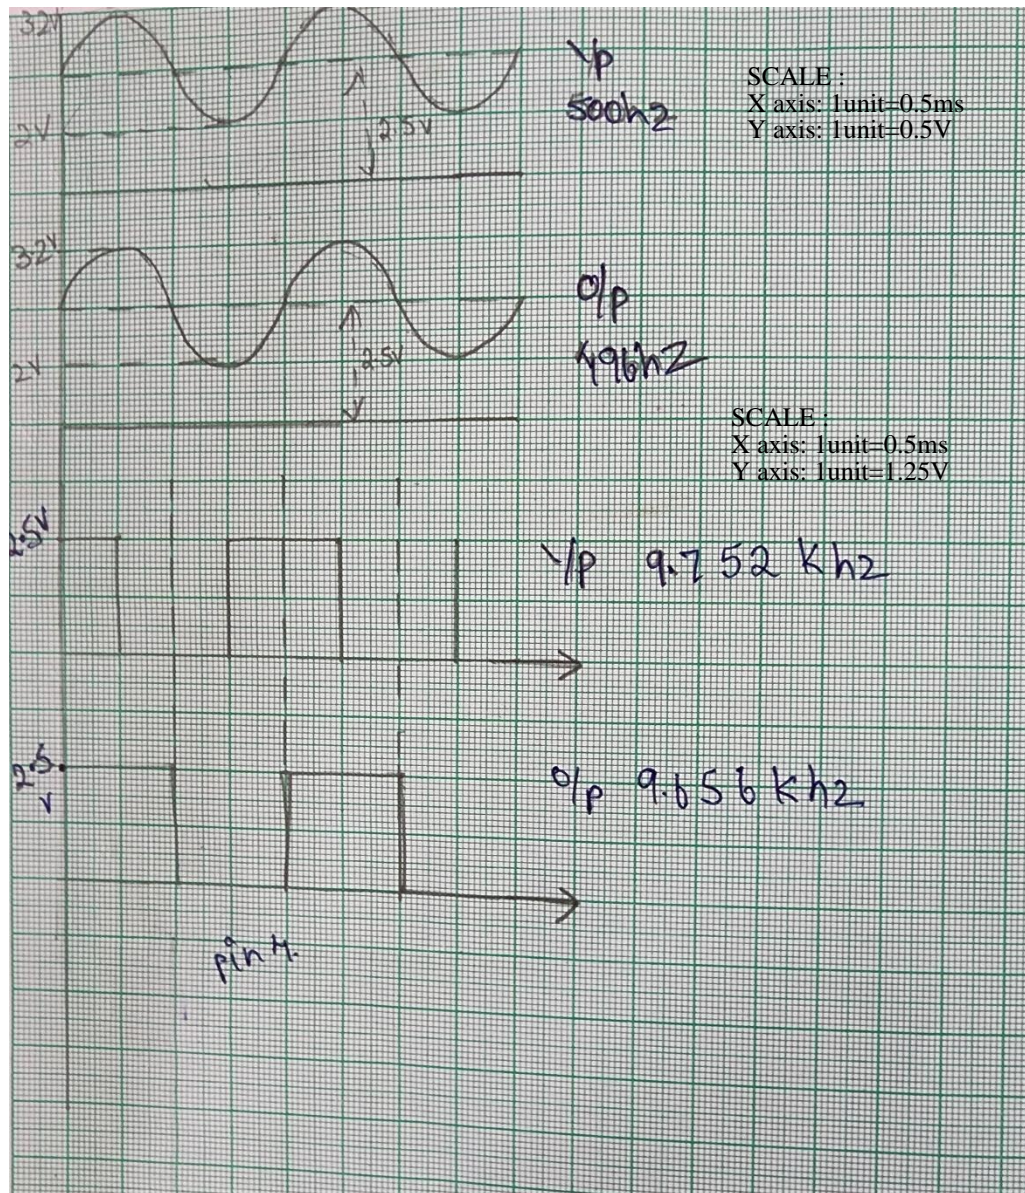 3.2V
I/p
500hz
SCALE :
X axis: 1unit=0.5ms
Y axis: 1unit=0.5V
2V
2.5V
3.2V
O/p
496hz
2V
2.5V
SCALE :
X axis: 1unit=0.5ms
Y axis: 1unit=1.25V
2.5V
I/p 9.752 Khz
2.5
V
O/p 9.656 Khz
pin 4.